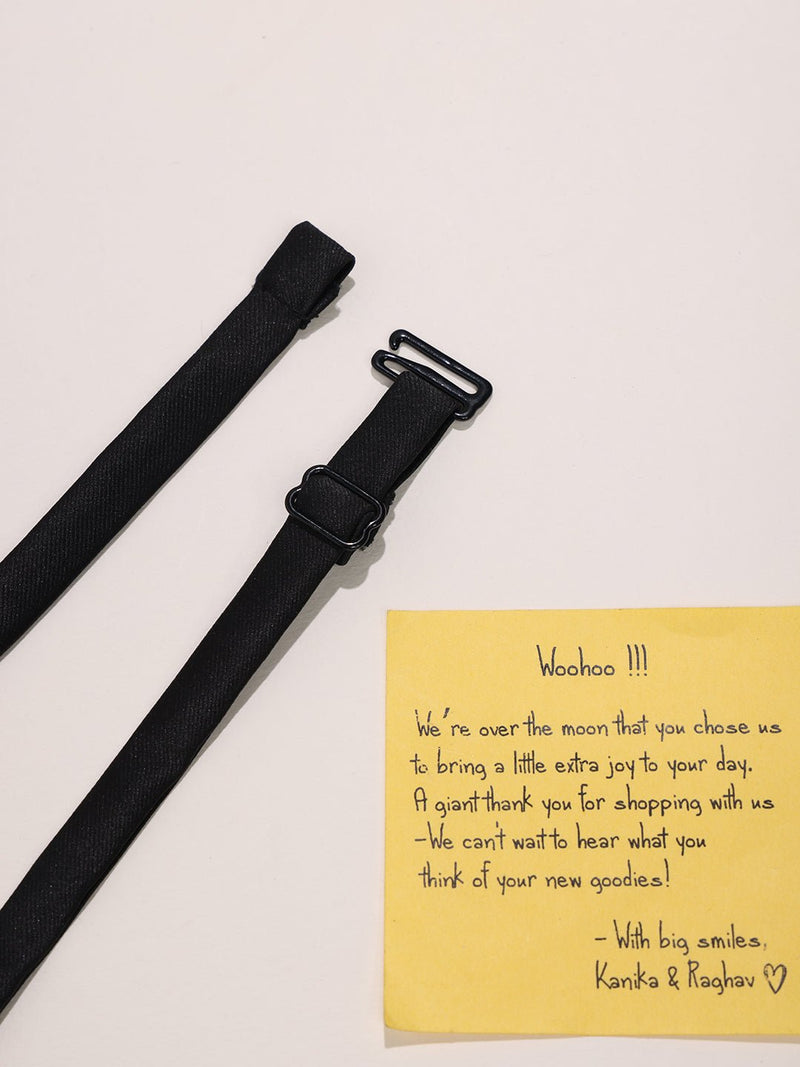 Woohoo !!!
We're over the moon that you chose us
to bring a little extra joy to your day.
A giant thank you for shopping with us
-We can't wait to hear what you
think of your new goodies!
- With big smiles,
Kanika & Raghav ♡